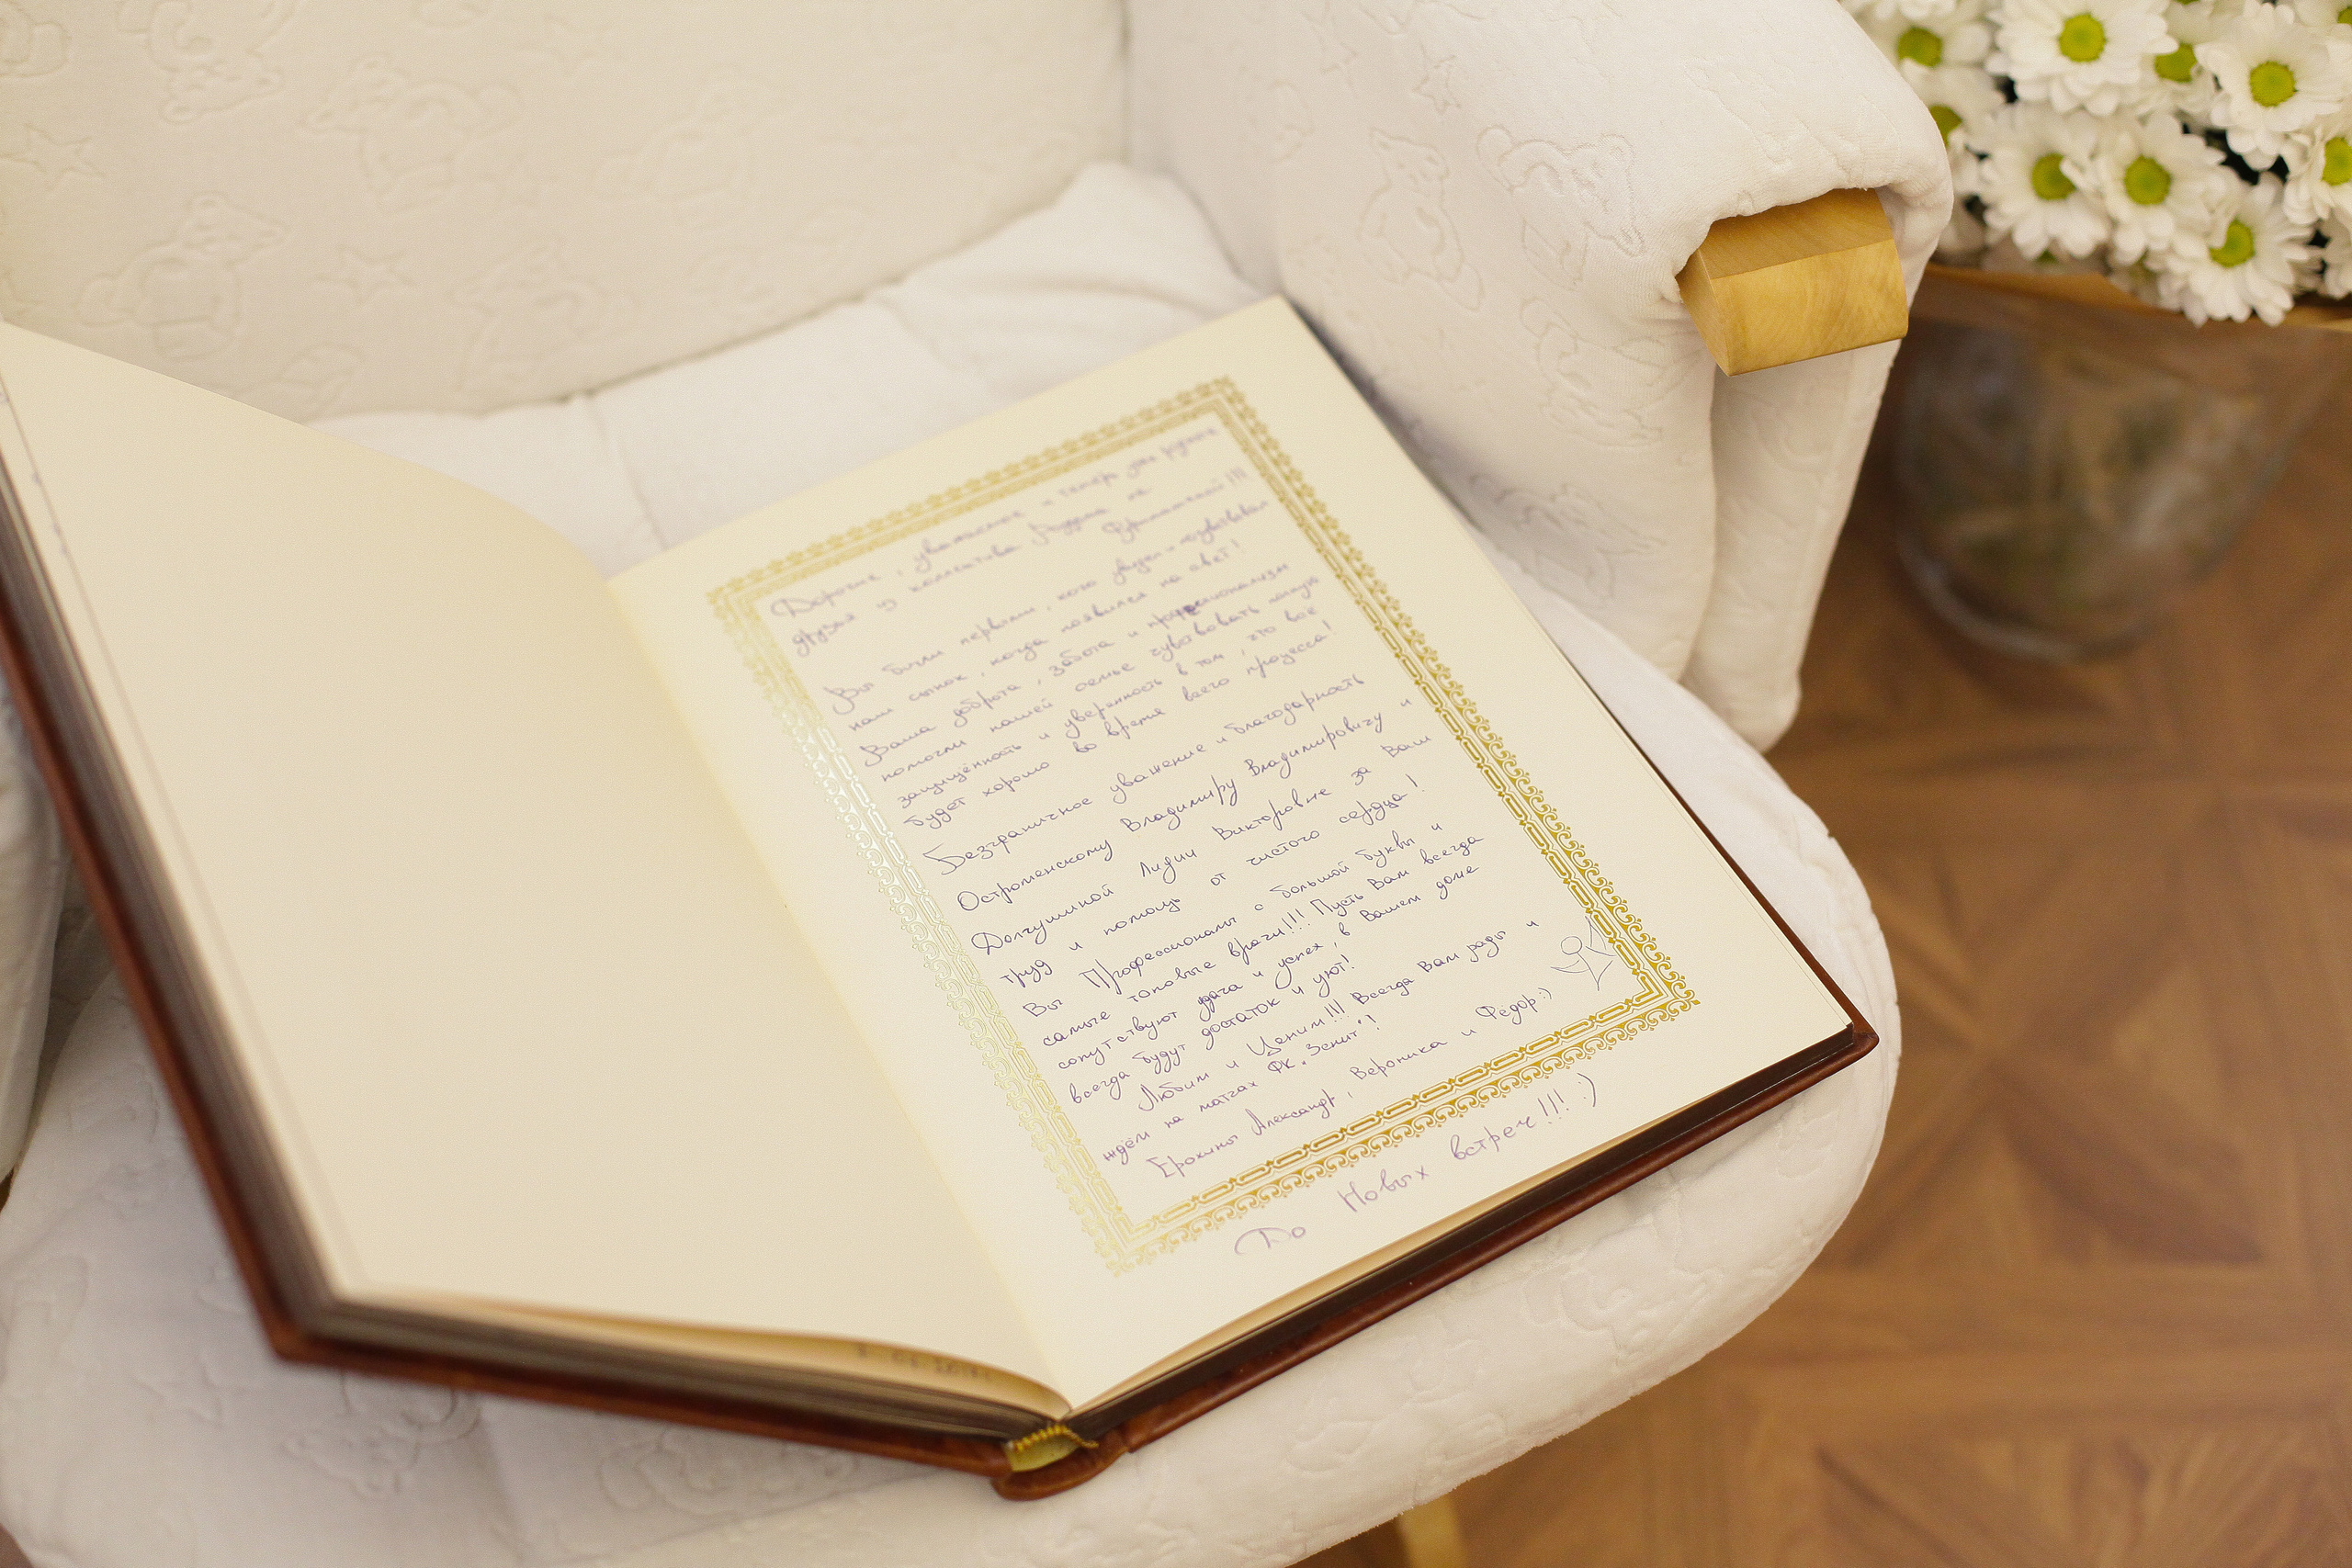 Дорогие, уважаемые и теперь уже родные
друзья из коллектива Роддома на
Фурштатской!!!
Вы были первыми, кого увидел и почувствовал
наш сынок, когда появился на свет!
Ваша доброта, забота и профессионализм
помогли нашей семье чувствовать
защищённость и уверенность в том, что всё
будет хорошо во время всего процесса!
Безграничное уважение и благодарность
Остроменскому Владимиру Владимировичу и
Долгушиной Лидии Викторовне за Ваш
труд и помощь от чистого сердца!
Вы Профессионалы с большой буквы и
самые топовые врачи!!! Пусть Вам всегда
сопутствуют удача и успех, в Вашем доме
всегда будут достаток и уют!
Любим и Ценим!!! Всегда Вам рады и
ждём на матчах ФК "Зенит"!
Ерохины Александр, Вероника и Федор:)
До Новых встреч!!! :)